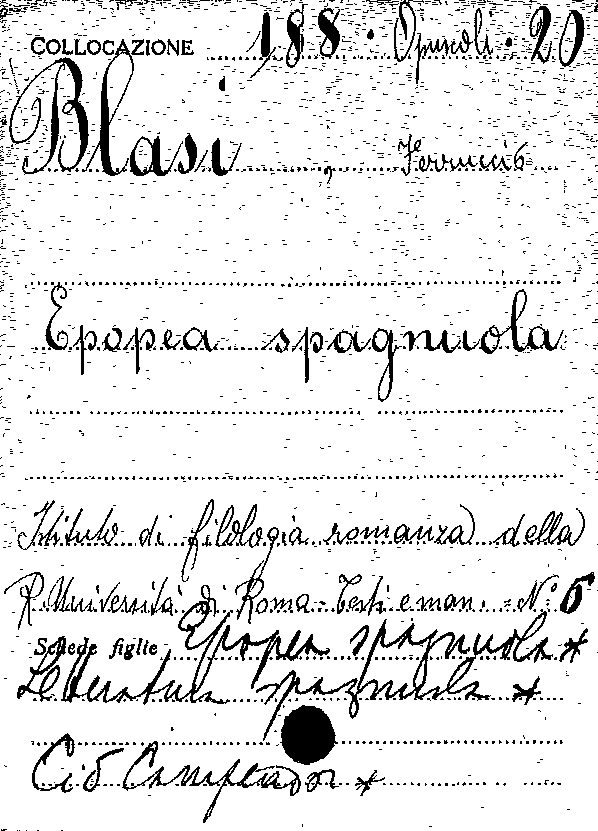 COLLOCAZIONE 188 · Opuscoli · 20
Blasi , Ferruccio
Epopea spagnuola
Istituto di filologia romanza della
R. Università di Roma - Testi e man. - N.° 5
Schede figlie Epopea spagnuola *
Letteratura spagnuola *
Cid Campeador *